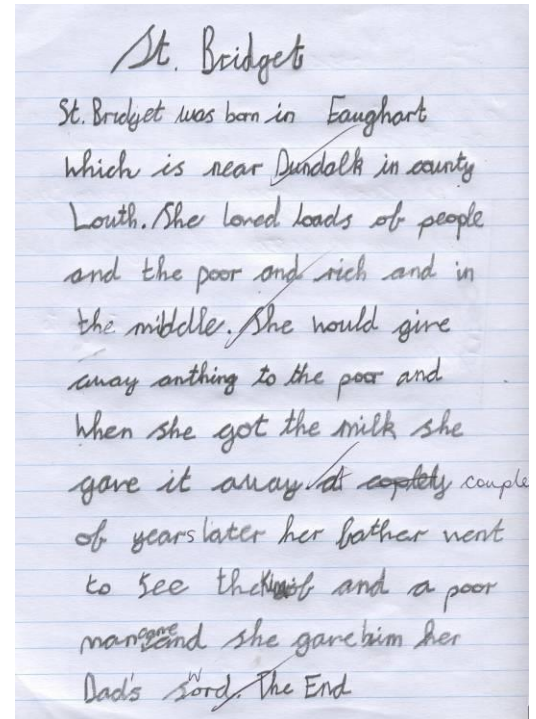 St. Bridget
St. Bridget was born in Eaughart
which is near Dundalk in county
Louth. She loved loads of people
and the poor and rich and in
the middle. She would give
away anthing to the poor and
when she got the milk she
gave it away. couple
of years later her father went
to see the King and a poor
man came and she gave him her
Dad's sword. The End